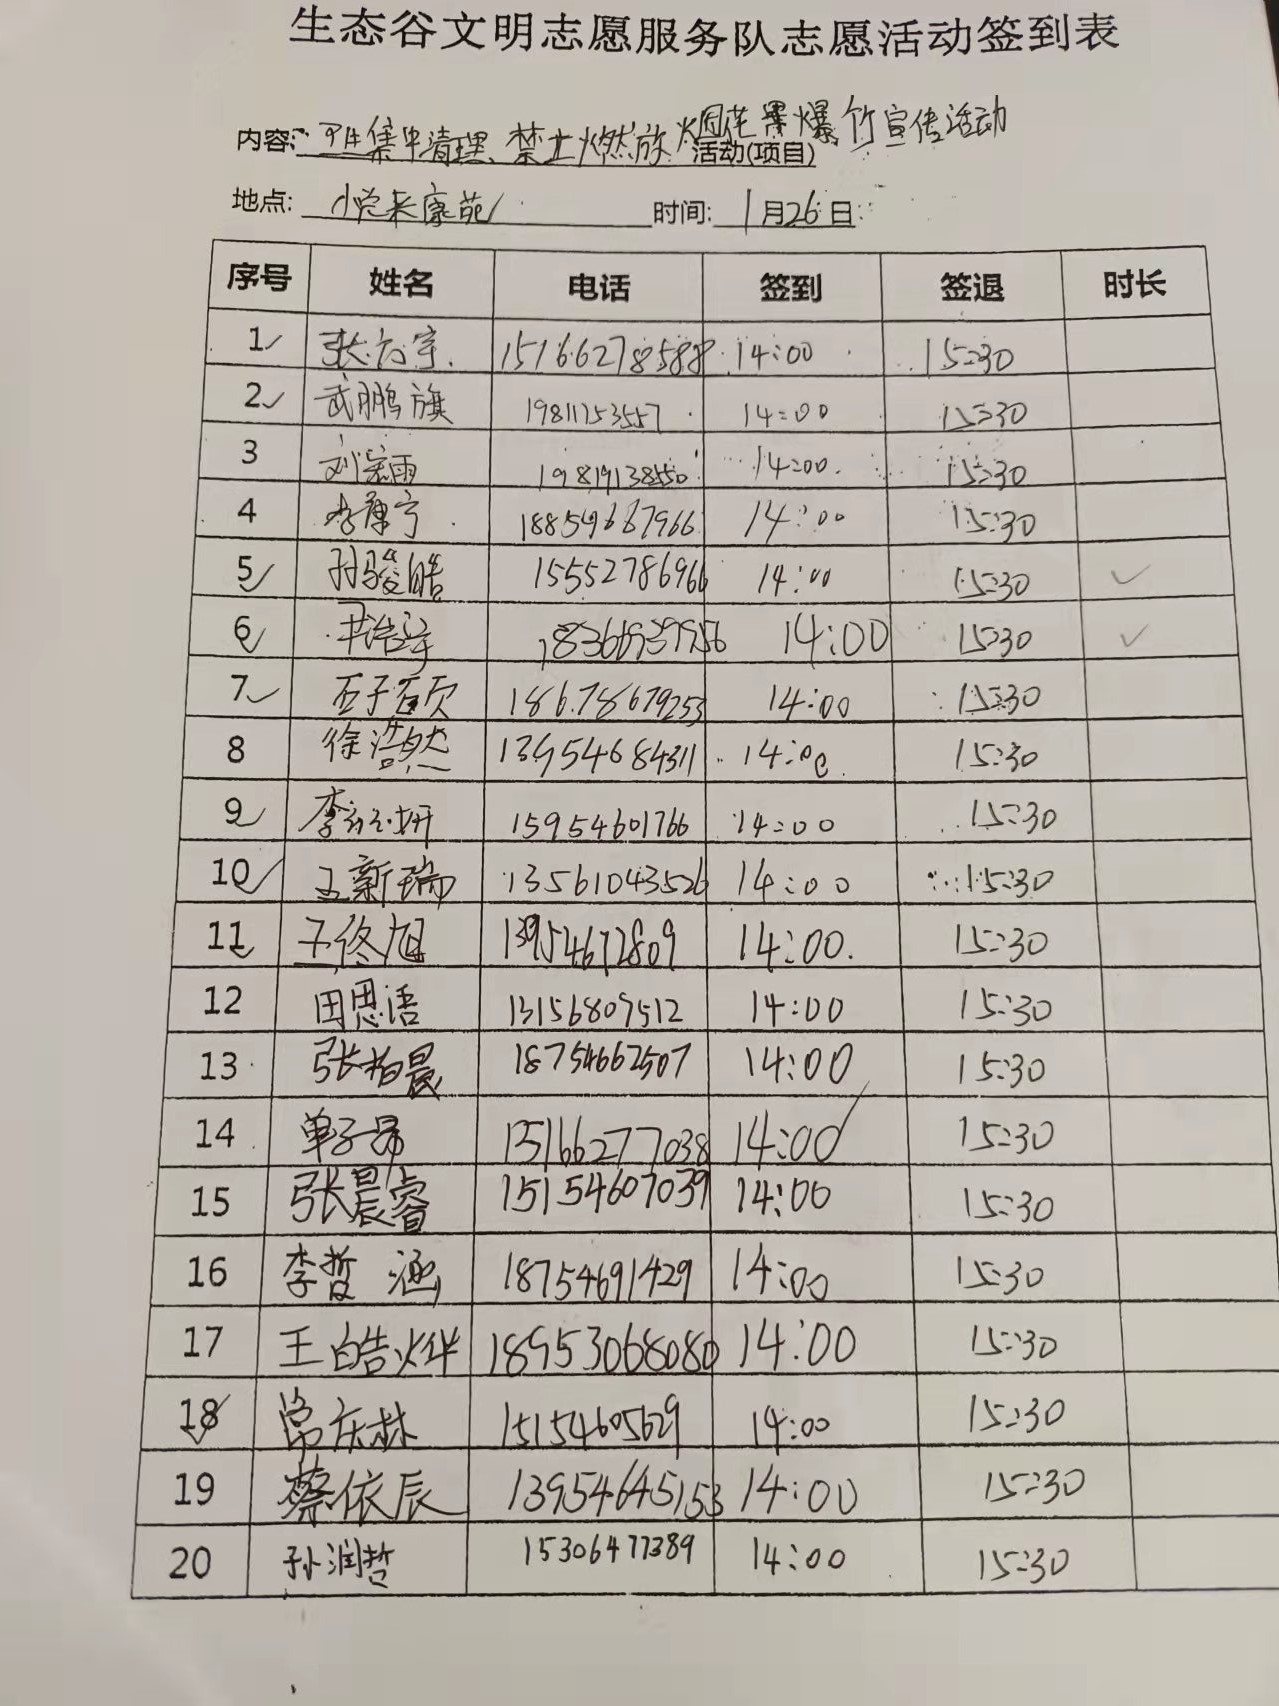 生态谷文明志愿服务队志愿活动签到表
内容: 集中清理、禁止燃放烟花爆竹宣传活动
活动(项目)
地点: 悦来康苑 时间: 1月26日
序号 姓名 电话 签到 签退 时长
1 张 宇 15166278588 14:00 15:30
2 武鹏旗 19811753557 14:00 15:30
3 刘 雨 19819138550 14:00 15:30
4 李康宁 18854667966 14:00 15:30
5 孙骏皓 15552786966 14:00 15:30 ✓
6 18366939956 14:00 15:30 ✓
7 石子 18678679253 14:00 15:30
8 徐浩然 13954684311 14:00 15:30
9 李 妍 15954601766 14:00 15:30
10 王新瑞 13561043526 14:00 15:30
11 王佟旭 13954672809 14:00 15:30
12 田思语 13156809512 14:00 15:30
13 张柏晨 18754662507 14:00 15:30
14 单子昂 15166277038 14:00 15:30
15 张晨睿 15154607039 14:00 15:30
16 李哲涵 18754691429 14:00 15:30
17 王皓烨 18953068080 14:00 15:30
18 常庆林 15154605629 14:00 15:30
19 蔡依辰 13954645153 14:00 15:30
20 孙润哲 15306477389 14:00 15:30